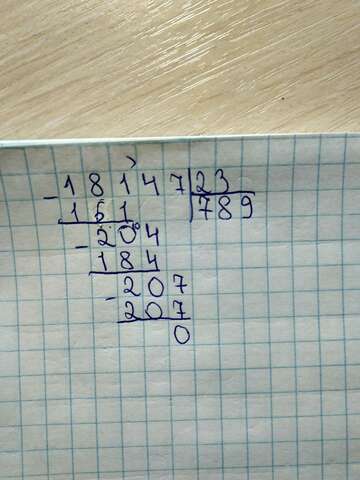 - 18147 | 23
161 | 789
- 204
184
- 207
207
0